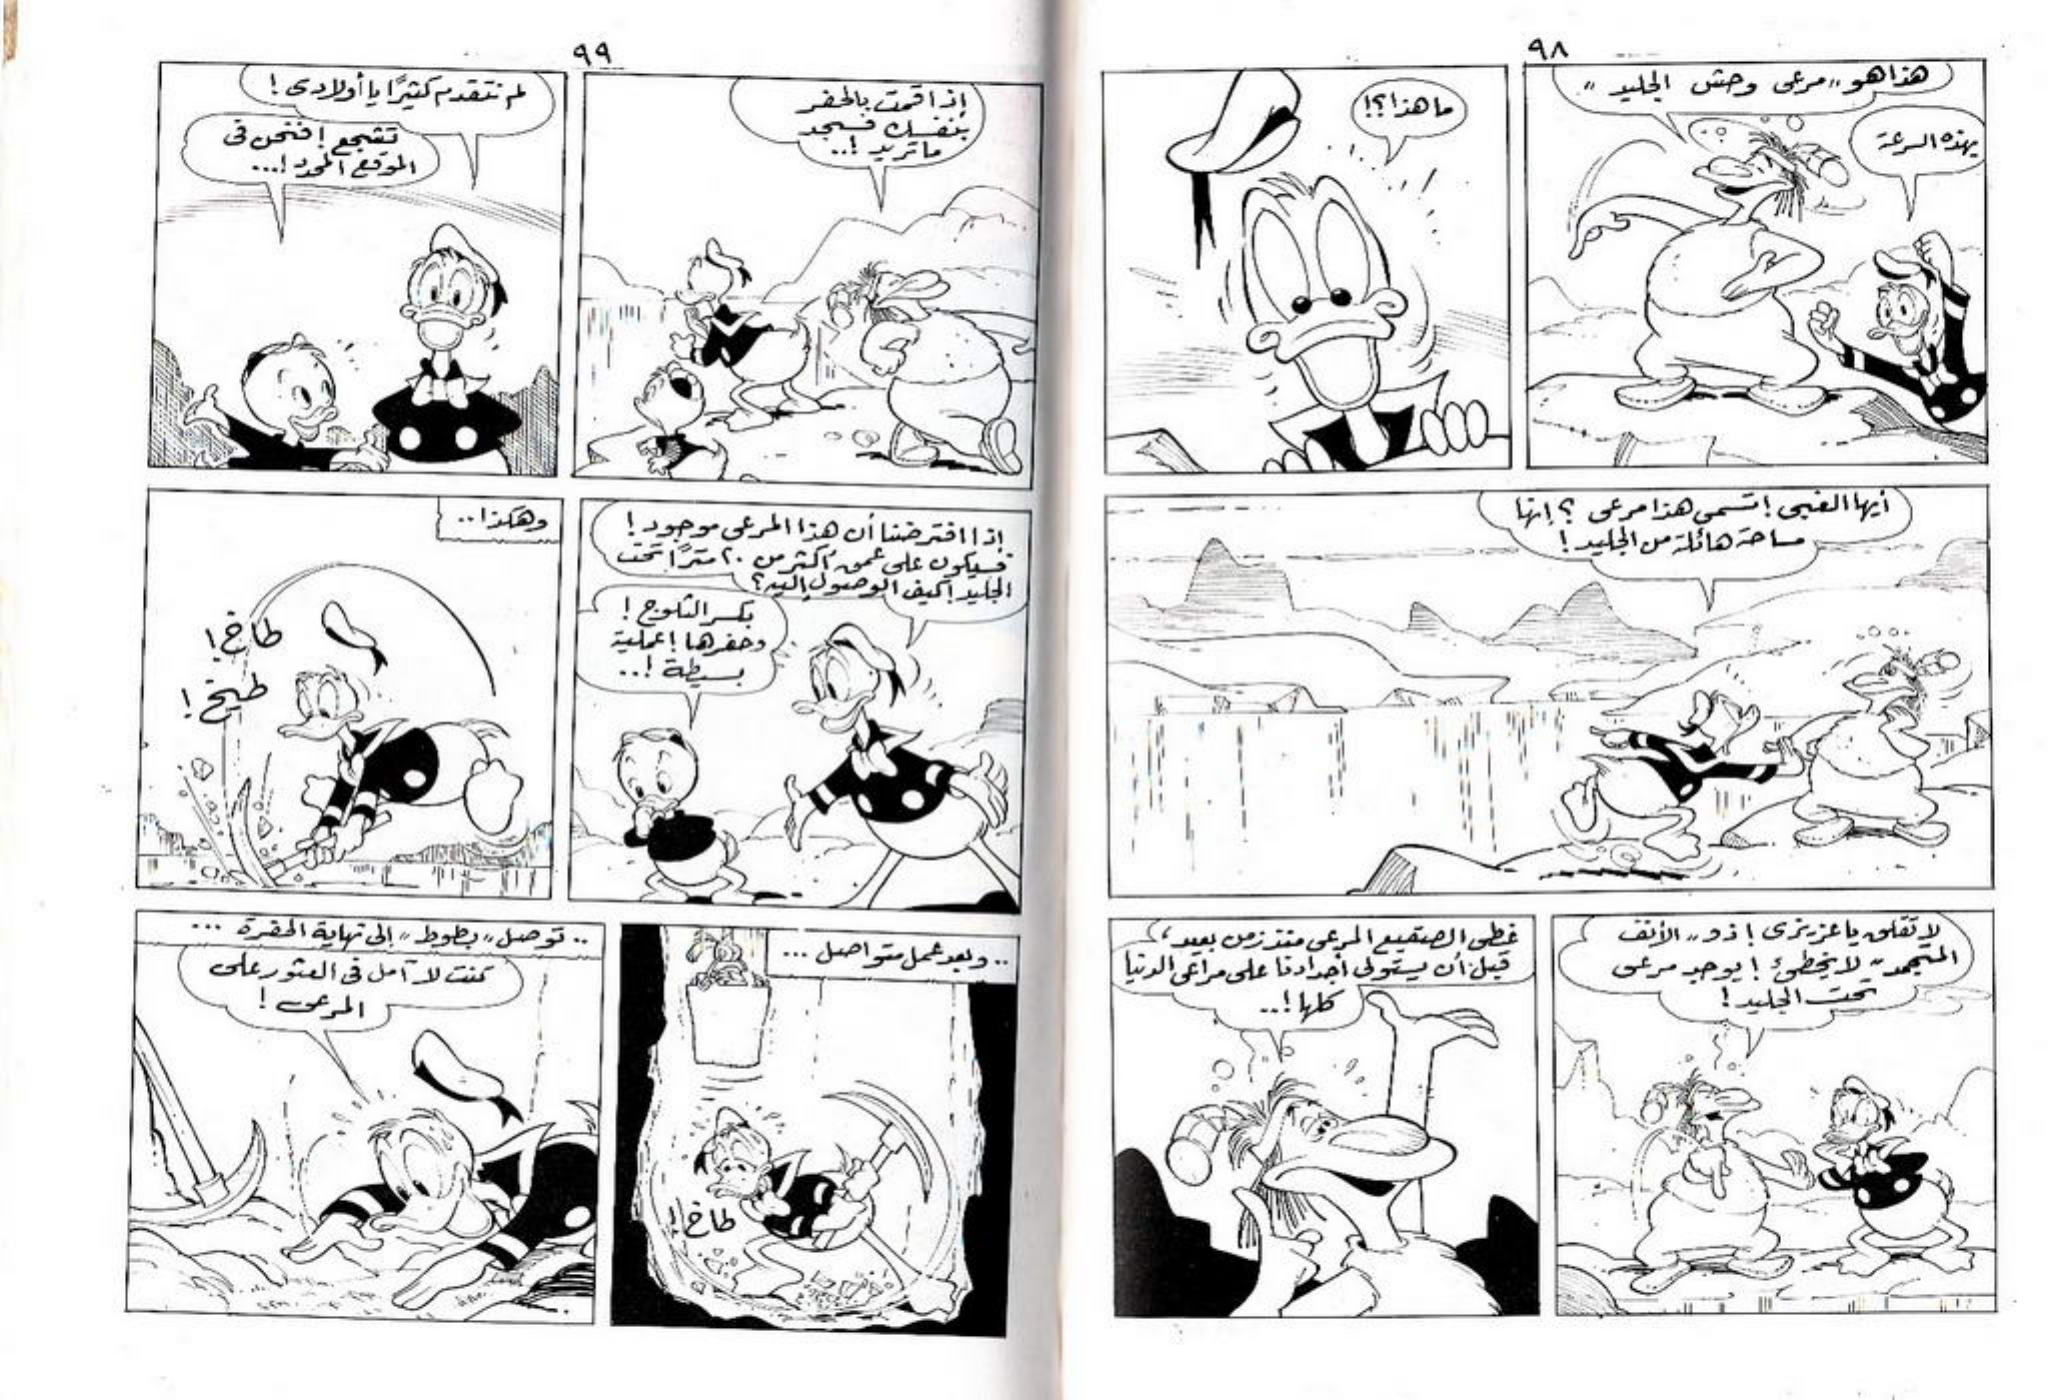 ٩٨
هذا هو ,, مرعى وحش الجليد ,,
بهذه السرعة
ما هذا؟!
أيها الغبى ! تسمى هذا مرعى ؟ إنها
مساحة هائلة من الجليد !
لا تقلق يا عزيزى ! ذو ,, الأنف
المتجمد ,, لا يخطئ ! يوجد مرعى
تحت الجليد !
غطى الصقيع المرعى منذ زمن بعيد ،
قبل أن يستولى أجدادنا على مراعى الدنيا
كلها !..
٩٩
إذا قمت بالحفر
بنفسك فستجد
ما تريد !..
لم نتقدم كثيرًا يا أولادى !
تشجع ! فنحن فى
الموقع المحدد !...
إذا افترضنا أن هذا المرعى موجود !
فسيكون على عمق أكثر من ٢٠ مترًا تحت
الجليد ! كيف الوصول إليه ؟
بكسر الثلوج !
وحفرها ! عملية
بسيطة !..
وهكذا ..
طاخ !
طيخ !
.. وبعد عمل متواصل ...
طاخ !
.. توصل ,, بطوط ,, إلى نهاية الحفرة ...
كنت لا آمل فى العثور على
المرعى !